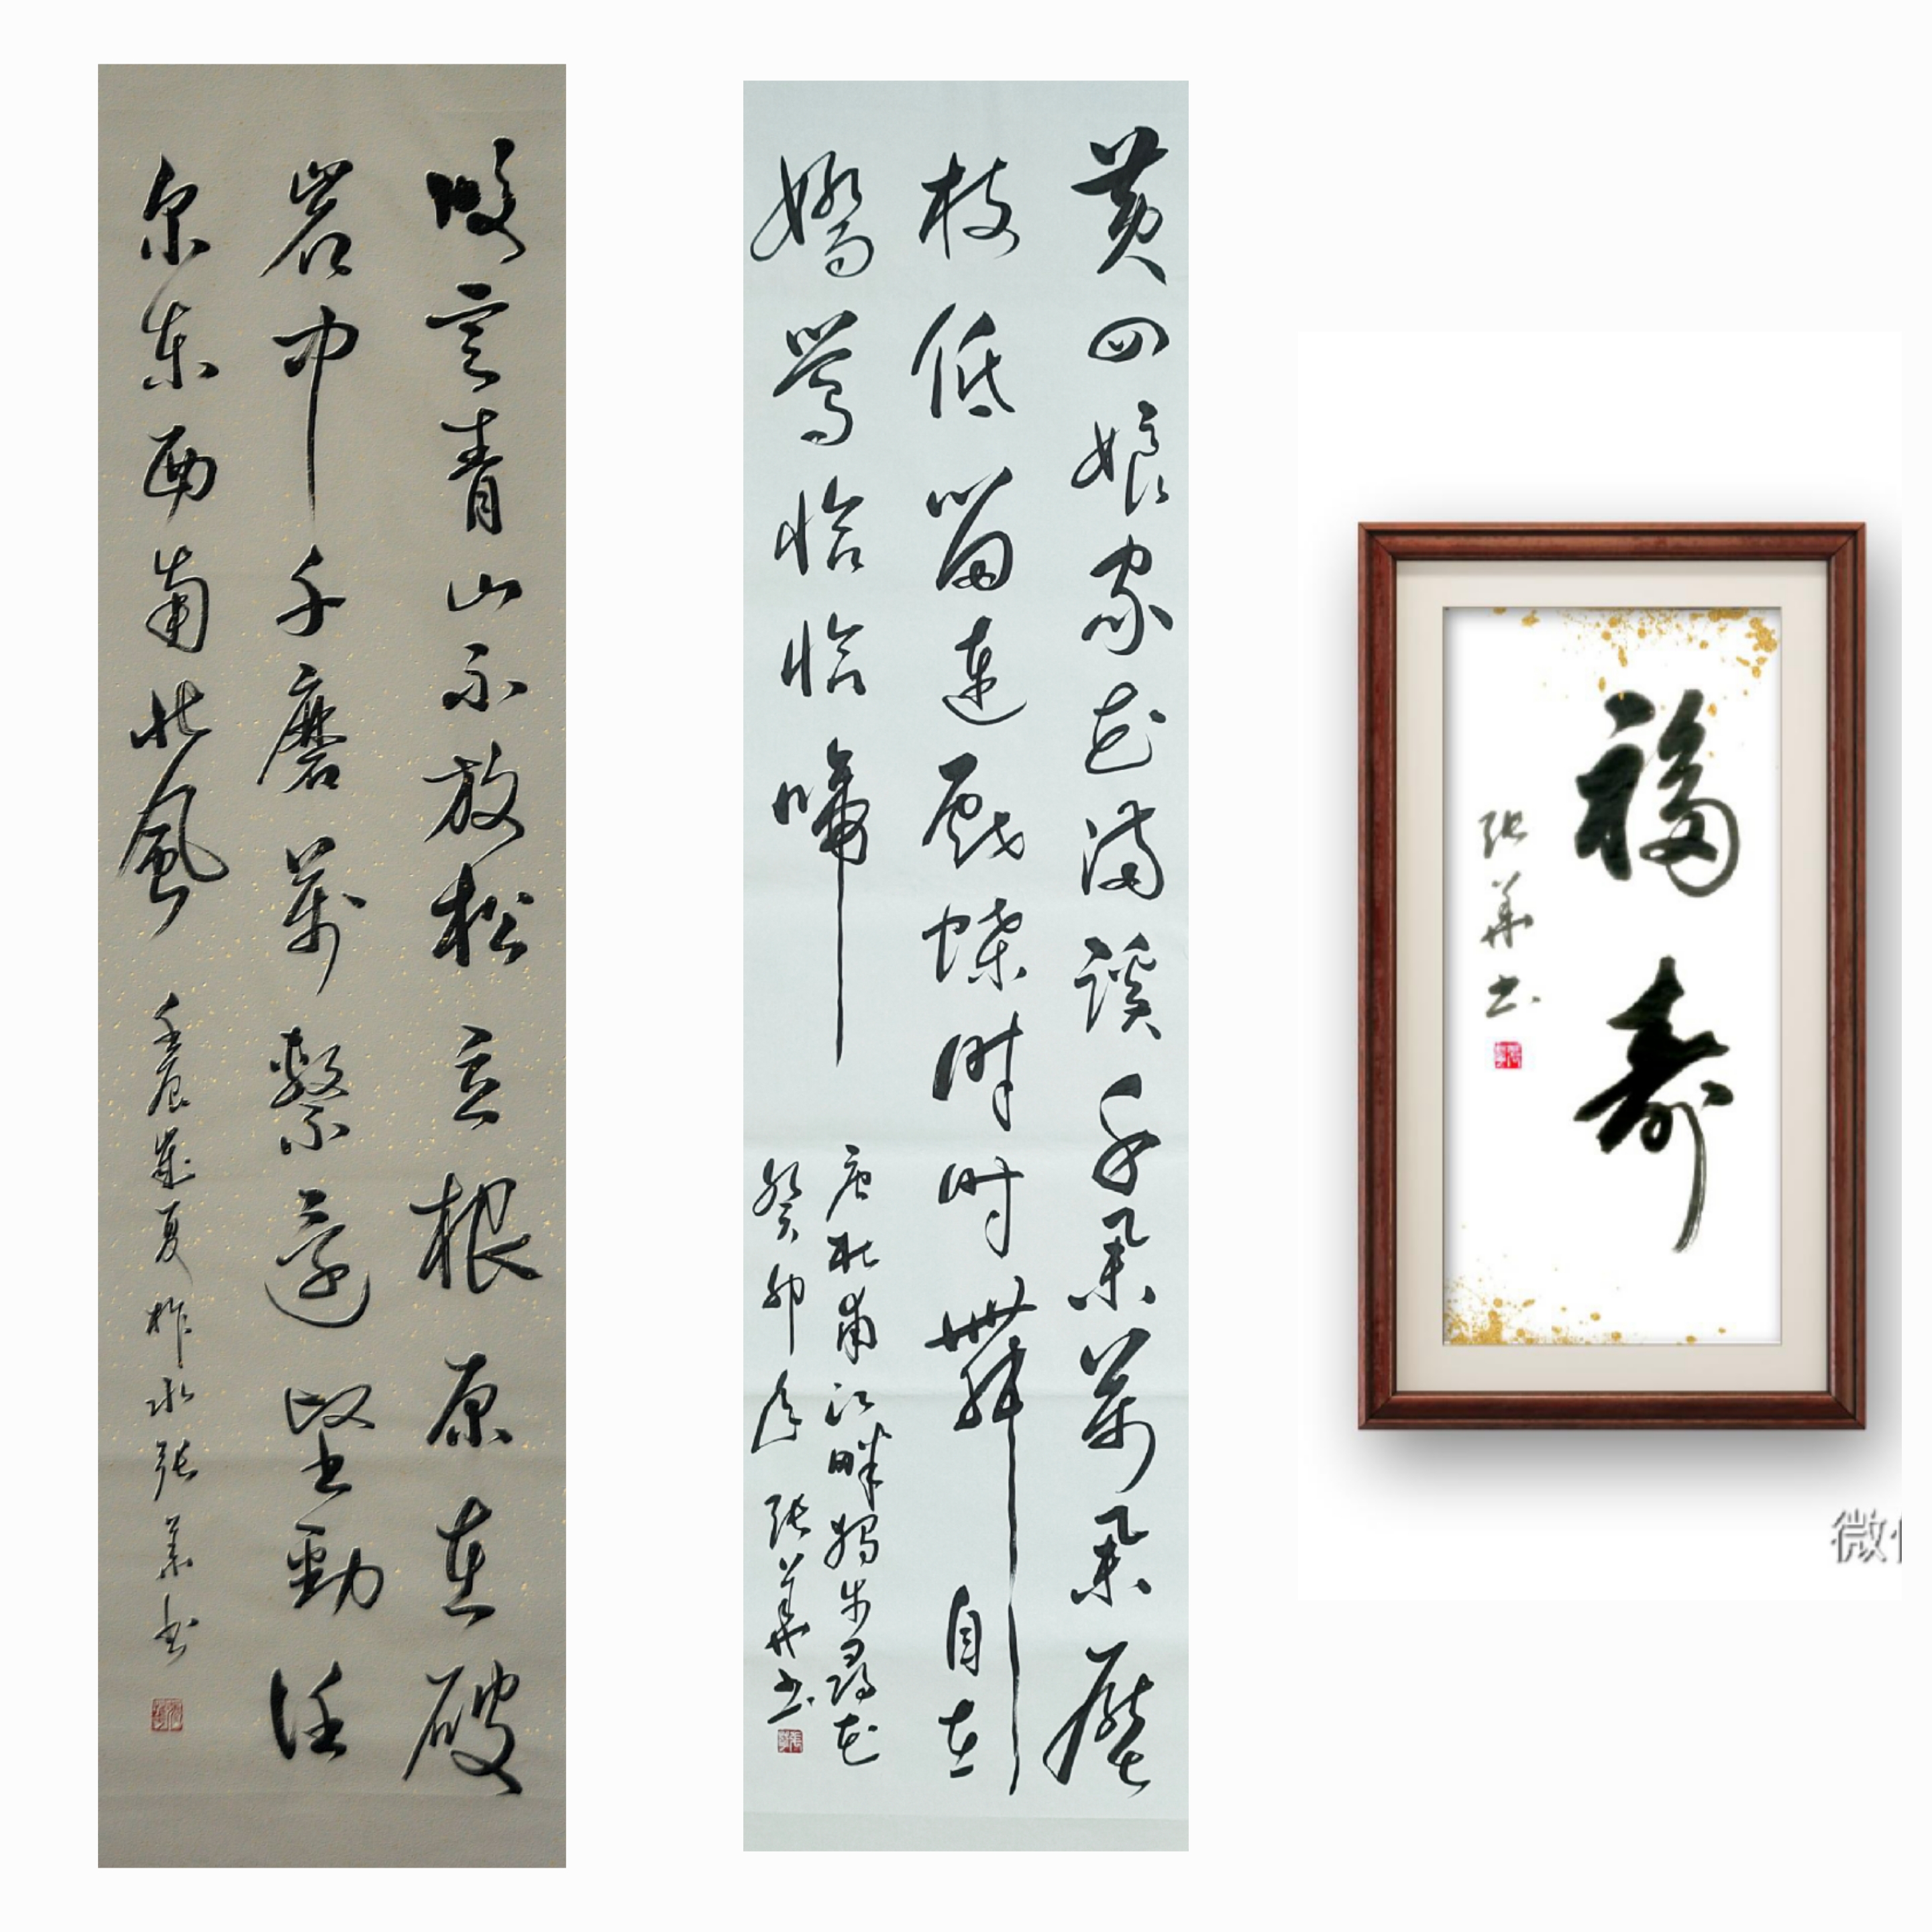 咬定青山不放松立根原在破
岩中千磨万击还坚劲任
尔东西南北风
壬辰岁夏柞水张华书
黄四娘家花满谿千朵萬朵壓
枝低留连戲蝶時时舞自在
嬌鶯恰恰啼
唐杜甫江畔獨步尋花
癸卯年张華书
福寿
张華书
微信